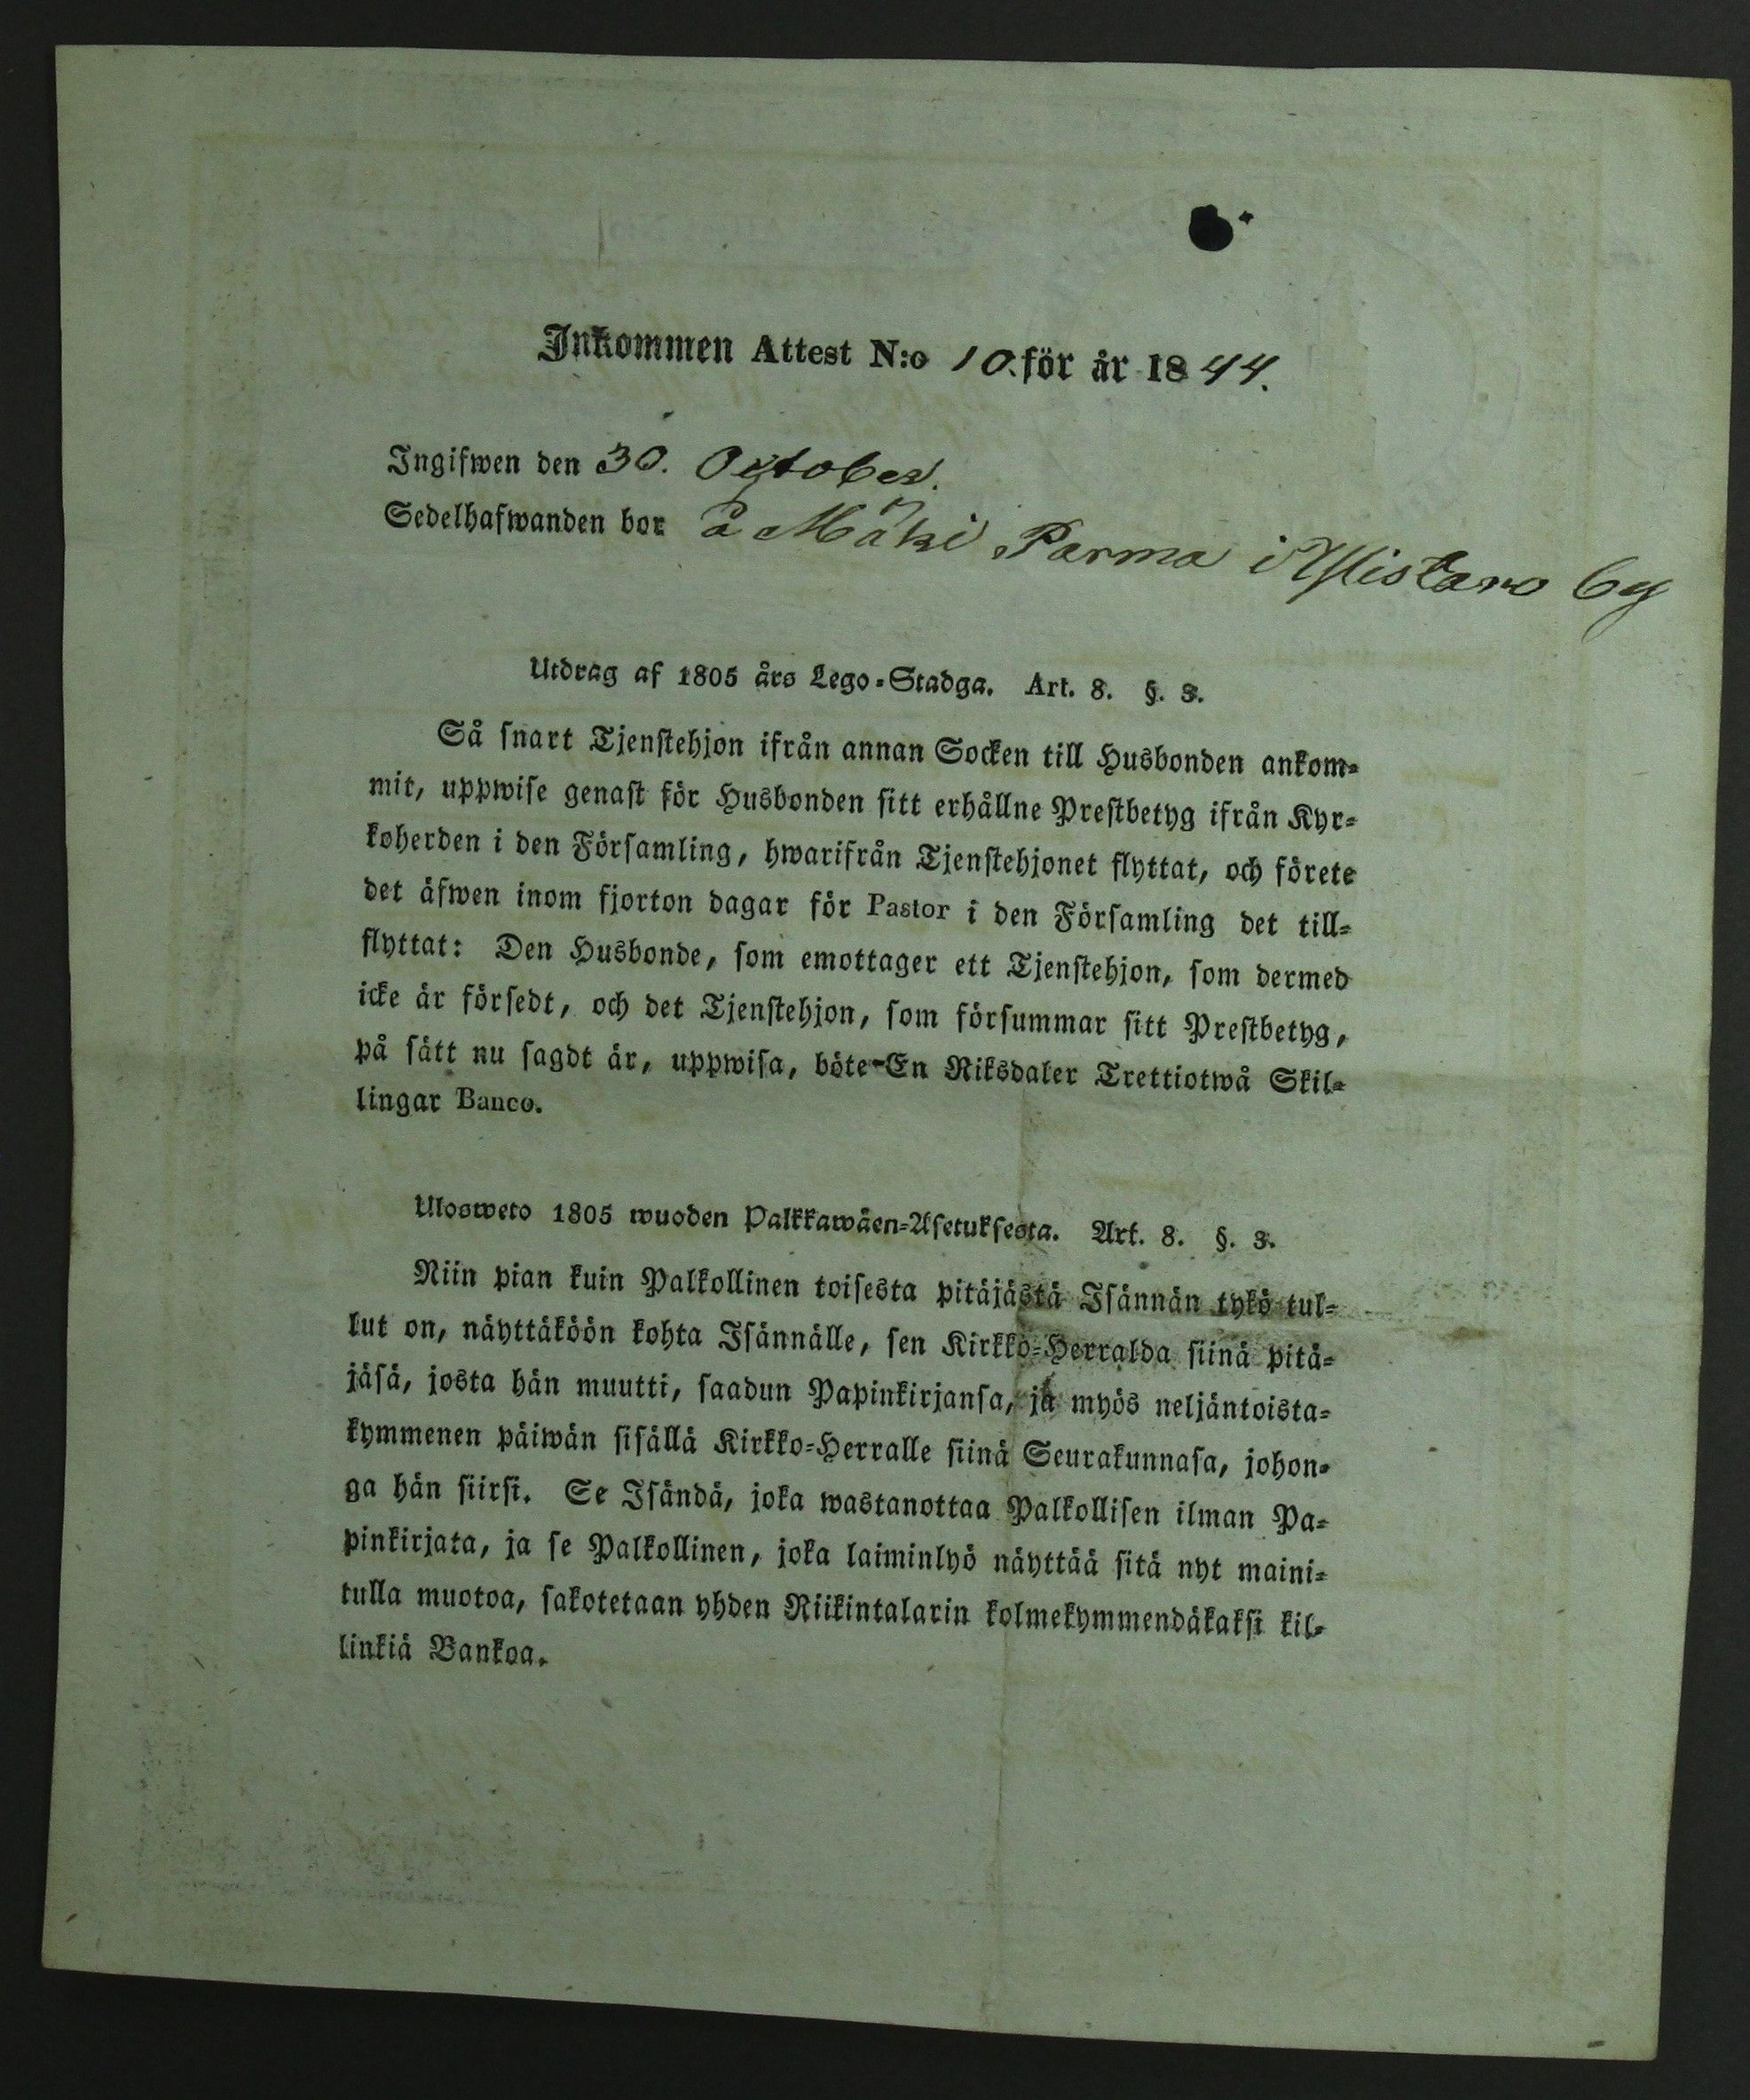 Inkommen Attest N:o 10. för år 1844.
Ingifwen den 30. October.
Sedelhafwanden bor å Mäki Parma i Ylistaro by
Utdrag af 1805 års Lego-Stadga. Art. 8. §. 3.
Så snart Tjenstehjon ifrån annan Socken till Husbonden ankom-
mit, uppwise genast för Husbonden sitt erhållne Prestbetyg ifrån Kyr-
koherden i den Församling, hwarifrån Tjenstehjonet flyttat, och förete
det äfwen inom fjorton dagar för Pastor i den Församling det till-
flyttat: Den Husbonde, som emottager ett Tjenstehjon, som dermed
icke är försedt, och det Tjenstehjon, som försummar sitt Prestbetyg,
på sätt nu sagdt är, uppwisa, böte En Riksdaler Trettiotwå Skil-
lingar Banco.
Ulosweto 1805 wuoden Palkkawäen-Asetuksesta. Art. 8. §. 3.
Niin pian kuin Palkollinen toisesta pitäjästä Isännän tykö tul-
lut on, näyttäköön kohta Isännälle, sen Kirkko-Herralda siinä pitä-
jäsä, josta hän muutti, saadun Papinkirjansa, ja myös neljäntoista-
kymmenen päiwän sisällä Kirkko-Herralle siinä Seurakunnasa, johon-
ga hän siirsi. Se Isändä, joka wastanottaa Palkollisen ilman Pa-
pinkirjata, ja se Palkollinen, joka laiminlyö näyttää sitä nyt maini-
tulla muotoa, sakotetaan yhden Riikintalarin kolmekymmendäkaksi kil-
linkiä Bankoa.